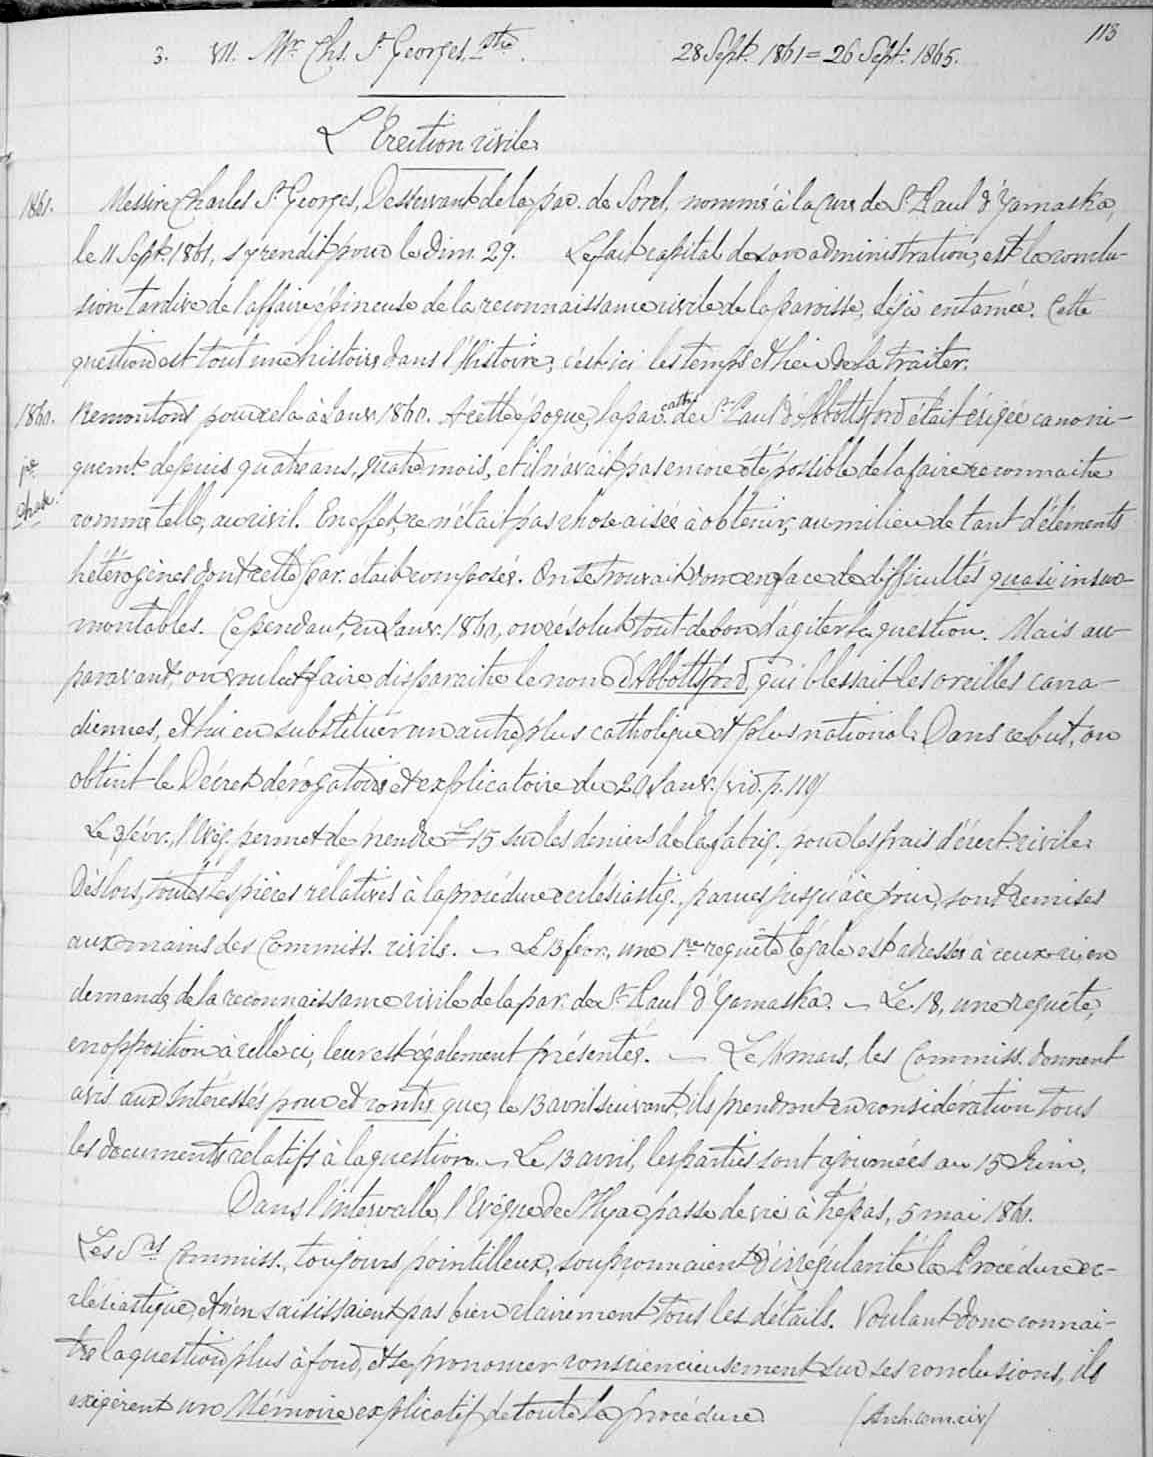 113
3. VII. Mr. Chs. St Georges, ptre. 28 Sept. 1861 = 26 Sept. 1865.
L'Erection civile.
1861. Messire Charles St Georges, Desservant de la par. de Sorel, nommé à la cure de St Paul d'Yamaska,
le 11 Sept. 1861, s'y rendit pour le dim. 29. Le fait capital de son administration, est la conclu-
sion tardive de l'affaire épineuse de la reconnaissance civile de la paroisse, déjà entamée. Cette
question est tout une histoire dans l'histoire; c'est ici le temps et lieu de la traiter.
1860. Remontons pour cela à Janv. 1860. A cette époque, la par. cath. de St Paul d'Abbottsford était érigée canoni-
1re quemt. depuis quatre ans, quatre mois, et il n'avait pas encore été possible de la faire reconnaitre
Phase. comme telle, au civil. En effet, ce n'était pas chose aisée à obtenir, au milieu de tant d'éléments
hétérogènes dont cette par. était composée. On se trouvait donc en face de difficultés quasi insur-
montables. Cependant, en Janv. 1860, on résolut tout de bon d'agiter la question. Mais au-
paravant, on voulut faire disparaitre le nom d'Abbottsford, qui blessait les oreilles cana-
diennes, et lui en substituer un autre plus catholique et plus national. Dans ce but, on
obtint le Décret dérogatoire et explicatoire du 20 Janv. (vid. p. 119)
Le 3 févr., l'Evêq. permet de prendre £15 sur les deniers de la fabriq. pour les frais d'érect. civile.
Dès lors, toutes les pièces relatives à la procédure ecclésiastiq., parues jusqu'à ce jour, sont remises
aux mains des Commiss. civils. — Le 13 févr., une 1re requête légale est adressée à ceux-ci, en
demande de la reconnaissance civile de la par. de St Paul d'Yamaska. — Le 18, une requête,
en opposition à celle ci, leur est également présentée. — Le 16 mars, les Commiss. donnent
avis aux Intéressés pour et contre, que, le 13 avril suivant, ils prendront en considération tous
les documents relatifs à la question. — Le 13 avril, les parties sont ajournées au 15 Juin.
Dans l'intervalle, l'Evêque de St Hyac. passe de vie à trépas, 5 mai 1860.
Les Srs Commiss., toujours pointilleux, soupçonnaient d'irrégularité la Procédure ec-
clésiastique, et n'en saisissaient pas bien clairement tous les détails. Voulant donc connai-
tre la question plus à fond, et se prononcer consciencieusement sur ses conclusions, ils
exigèrent un Mémoire explicatif de toute la procédure. (Arch. com. civ.)